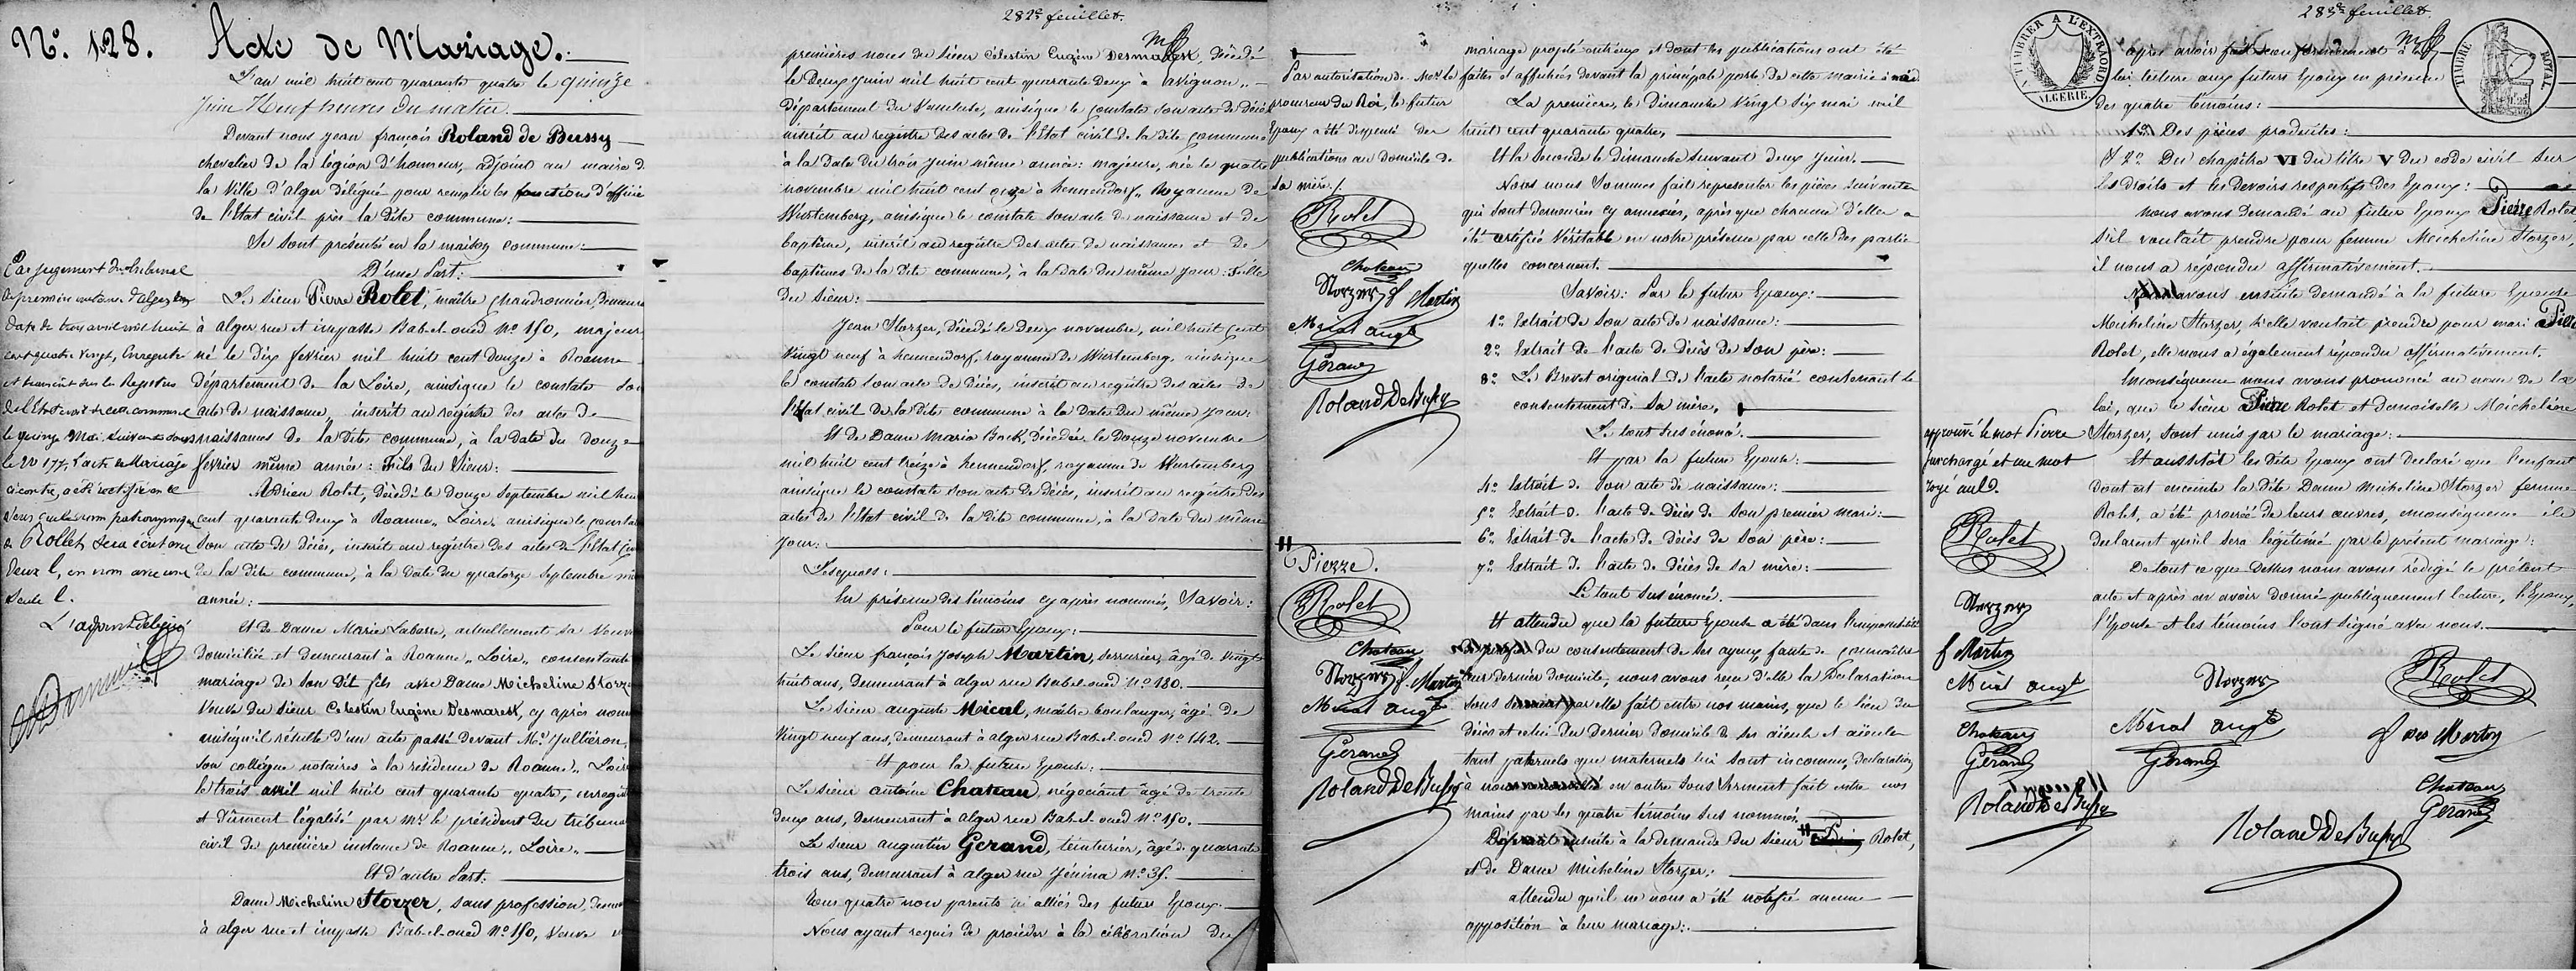 N.° 128.
Acte de Mariage.
L'an mil huit cent quarante quatre le quinze
Juin Neuf heures du matin.
Devant nous jean françois Roland de Bussy
chevalier de la légion d'honneur, adjoint au maire de
la Ville d'alger délégué pour remplir les fonctions d'officier
de l'état civil près la dite commune:
Se sont présentés en la maison commune:
D'une Part:
Le sieur Pierre Rolet, maître chaudronnier, demeurant
à alger rue et impasse Bab-el-oued N.° 150, majeur
né le dix fevrier mil huit cent douze à Roanne
Département de la Loire, ainsique le constate son
acte de naissance, inscrit au registre des actes de
naissances de la dite commune, à la date du douze
fevrier même année: Fils du Sieur:
Adrien Rolet, Décédé le Douze Septembre mil huit
cent quarante deux à Roanne „ Loire „ ainsique le constate
son acte de décès, inscrit au registre des actes de l'Etat Civil
de la dite commune, à la date du quatorze septembre même
année:
Et de Dame Marie Labarre, actuellement sa Veuve
domiciliée et demeurant à Roanne „ Loire „ consentante
mariage de son dit fils avec Dame Micheline Storzer
Veuve du sieur Celestin Eugène Desmarest, cy après nommée
ainsiqu'il résulte d'un acte passé devant M.e Jullieron,
son collègue notaires à la résidence de Roanne „ Loire
le trois avril mil huit cent quarante quatre, enregistré
et dûment légalisé par M.r le président du tribunal
civil de première instance de Roanne „ Loire „
Et d'autre Part:
Dame Micheline Storzer, sans profession, demeurant
à alger rue et impasse Bab-el-oued N.° 150, Veuve
Par jugement du tribunal
de première instance d'alger en
date du trois avril mil huit
cent quatre vingt, Enregistré
et transcrit sur les Registres
de l'Etat civil de cette commune
le quinze Mai suivant sous
le N° 177, l'acte de Mariage
ci contre, a été rectifié en ce
sens que le nom patronymique
de Rollet sera écrit avec
deux l, en non avec une
seule l.
L'adjoint délégué
282e feuillet.
premières noces du sieur Célestin Eugène Desmarest, décédé
le Deux juin mil huit cent quarante Deux à Avignon „
Département du Vaucluse, ainsique le constate son acte de décès
inscrit au registre des actes de l'Etat civil de la dite commune
à la date du trois juin même année: majeure, née le quatre
novembre mil huit cent onze à hennendorf „ Royaume de
Wurtemberg, ainsique le constate son acte de naissance et de
baptême, inscrit au registre des actes de naissances et de
baptêmes de la dite commune, à la date du même jour: Fille
du sieur:
Jean Storzer, décédé le Deux novembre, mil huit cent
vingt neuf à hennendorf, royaume de Wurtemberg ainsique
le constate son acte de décès, inscrit au registre des actes de
l'état civil de la dite commune à la date du même jour:
Et de Dame Maria Bock, Décédée le Douze novembre
mil huit cent treize à hennendorf, royaume de Wurtemberg
ainsique le constate son acte de décès, inscrit au registre des
actes de l'Etat civil de la dite commune, à la date du même
jour:
Lesquels:
En présence des témoins cy après nommés, Savoir:
Pour le futur Epoux:
Le sieur françois Joseph Martin, serrurier, âgé de vingt
huit ans, demeurant à alger rue Bab-el-oued N.° 180.
Le sieur auguste Mical, maître boulanger, âgé de
Vingt neuf ans, demeurant à alger rue Bab-el-oued N.° 142.
Et pour la future Epouse:
Le sieur antoine Chateau, négociant âgé de trente
deux ans, demeurant à alger rue Bab-el-oued N.° 150.
Le sieur augustin Gerand, teinturier, âgé de quarante
trois ans, demeurant à alger rue Jénina N.° 35.
Tous quatre non parents ni alliés des futurs Epoux.
Nous ayant requis de procéder à la célébration du
Par autorisation de M.r le
procureur du Roi, le futur
Epoux a été dispensé des
publications au domicile de
sa mère.
Rolet
Chateau
Storzer f Martin
Mical augte
Gerand
Roland De Bussy
Pierre.
Rolet
Chateau
Storzer f. Martin
Mical augte
Gerand
Roland De Bussy
mariage projeté entr'eux et dont les publications ont été
faites et affichées devant la principale porte de cette mairie à midi
La première, le Dimanche Vingt six mai mil
huit cent quarante quatre,
Et la seconde le dimanche suivant deux juin.
Nous nous sommes fait représenter les pièces suivantes
qui sont demeurées cy annexées, après que chacune d'elles a
été certifiée véritable en notre présence par celle des parties
qu'elles concernent.
Savoir: Par le futur Epoux:
1.° Extrait de son acte de naissance:
2.° Extrait de l'acte de décès de son père:
3.° Le Brevet original de l'acte notarié contenant le
consentement de sa mère,
Le tout sus énoncé.
Et par la future Epouse:
4.° Extrait de son acte de naissance:
5.° Extrait de l'acte de décès de son premier mari:
6.° Extrait de l'acte de décès de son père:
7.° Extrait de l'acte de décès de sa mère:
Le tout sus énoncé.
Et attendu que la future Epouse a été dans l'impossibilité
de justifier du consentement de ses ayeux, faute de connaître
leur dernier domicile, nous avons reçu d'elle la déclaration
sous serment par elle fait entre nos mains, que le lieu du
décès et celui du dernier domicile de ses aïeuls et aïeules
tant paternels que maternels lui sont inconnus, déclaration
à nous en outre sous serment fait entre nos
mains par les quatre témoins sus nommés.
Déférant ensuite à la demande du sieur Rolet,
et de Dame Micheline Storzer:
attendu qu'il ne nous a été notifié aucune
opposition à leur mariage:
283e feuillet.
TIMBRER A L'EXTRAORD
ALGERIE.
TIMBRE ROYAL
après avoir
lui lecture aux futurs Epoux en présence
des quatre témoins:
1.° Des pièces produites:
Et 2.° Du chapitre VI du titre V du code civil sur
les droits et les devoirs respectifs des Epoux:
nous avons demandé au futur Epoux Pierre Rolet
s'il voulait prendre pour femme Micheline Storzer,
il nous a répondu affirmativement.
Nous avons ensuite demandé à la future Epouse
Micheline Storzer, si elle voulait prendre pour mari Pierre
Rolet, elle nous a également répondu affirmativement.
Enconséquence nous avons prononcé au nom de la
loi, que le sieur Pierre Rolet et Demoiselle Micheline
Storzer, sont unis par le mariage:
Et aussitôt les dits Epoux ont déclaré que l'enfant
dont est enceinte la dite Dame Micheline Storzer femme
Rolet, a été procréé de leurs œuvres, enconséquence ils
déclarent qu'il sera légitimé par le présent mariage:
De tout ce que dessus nous avons rédigé le présent
acte et après en avoir donné publiquement lecture, l'Epoux,
l'Epouse et les témoins l'ont signé avec nous.
approuvé le mot Pierre
surchargé et un mot
rayé nul.
Rolet
Storzer
f Martin
Mical augt
Chateau
Gerand
Roland De Bussy
Storzer
Rolet
Mical augte
Martin
Gerand
Chateau
Gerand
Roland De Bussy